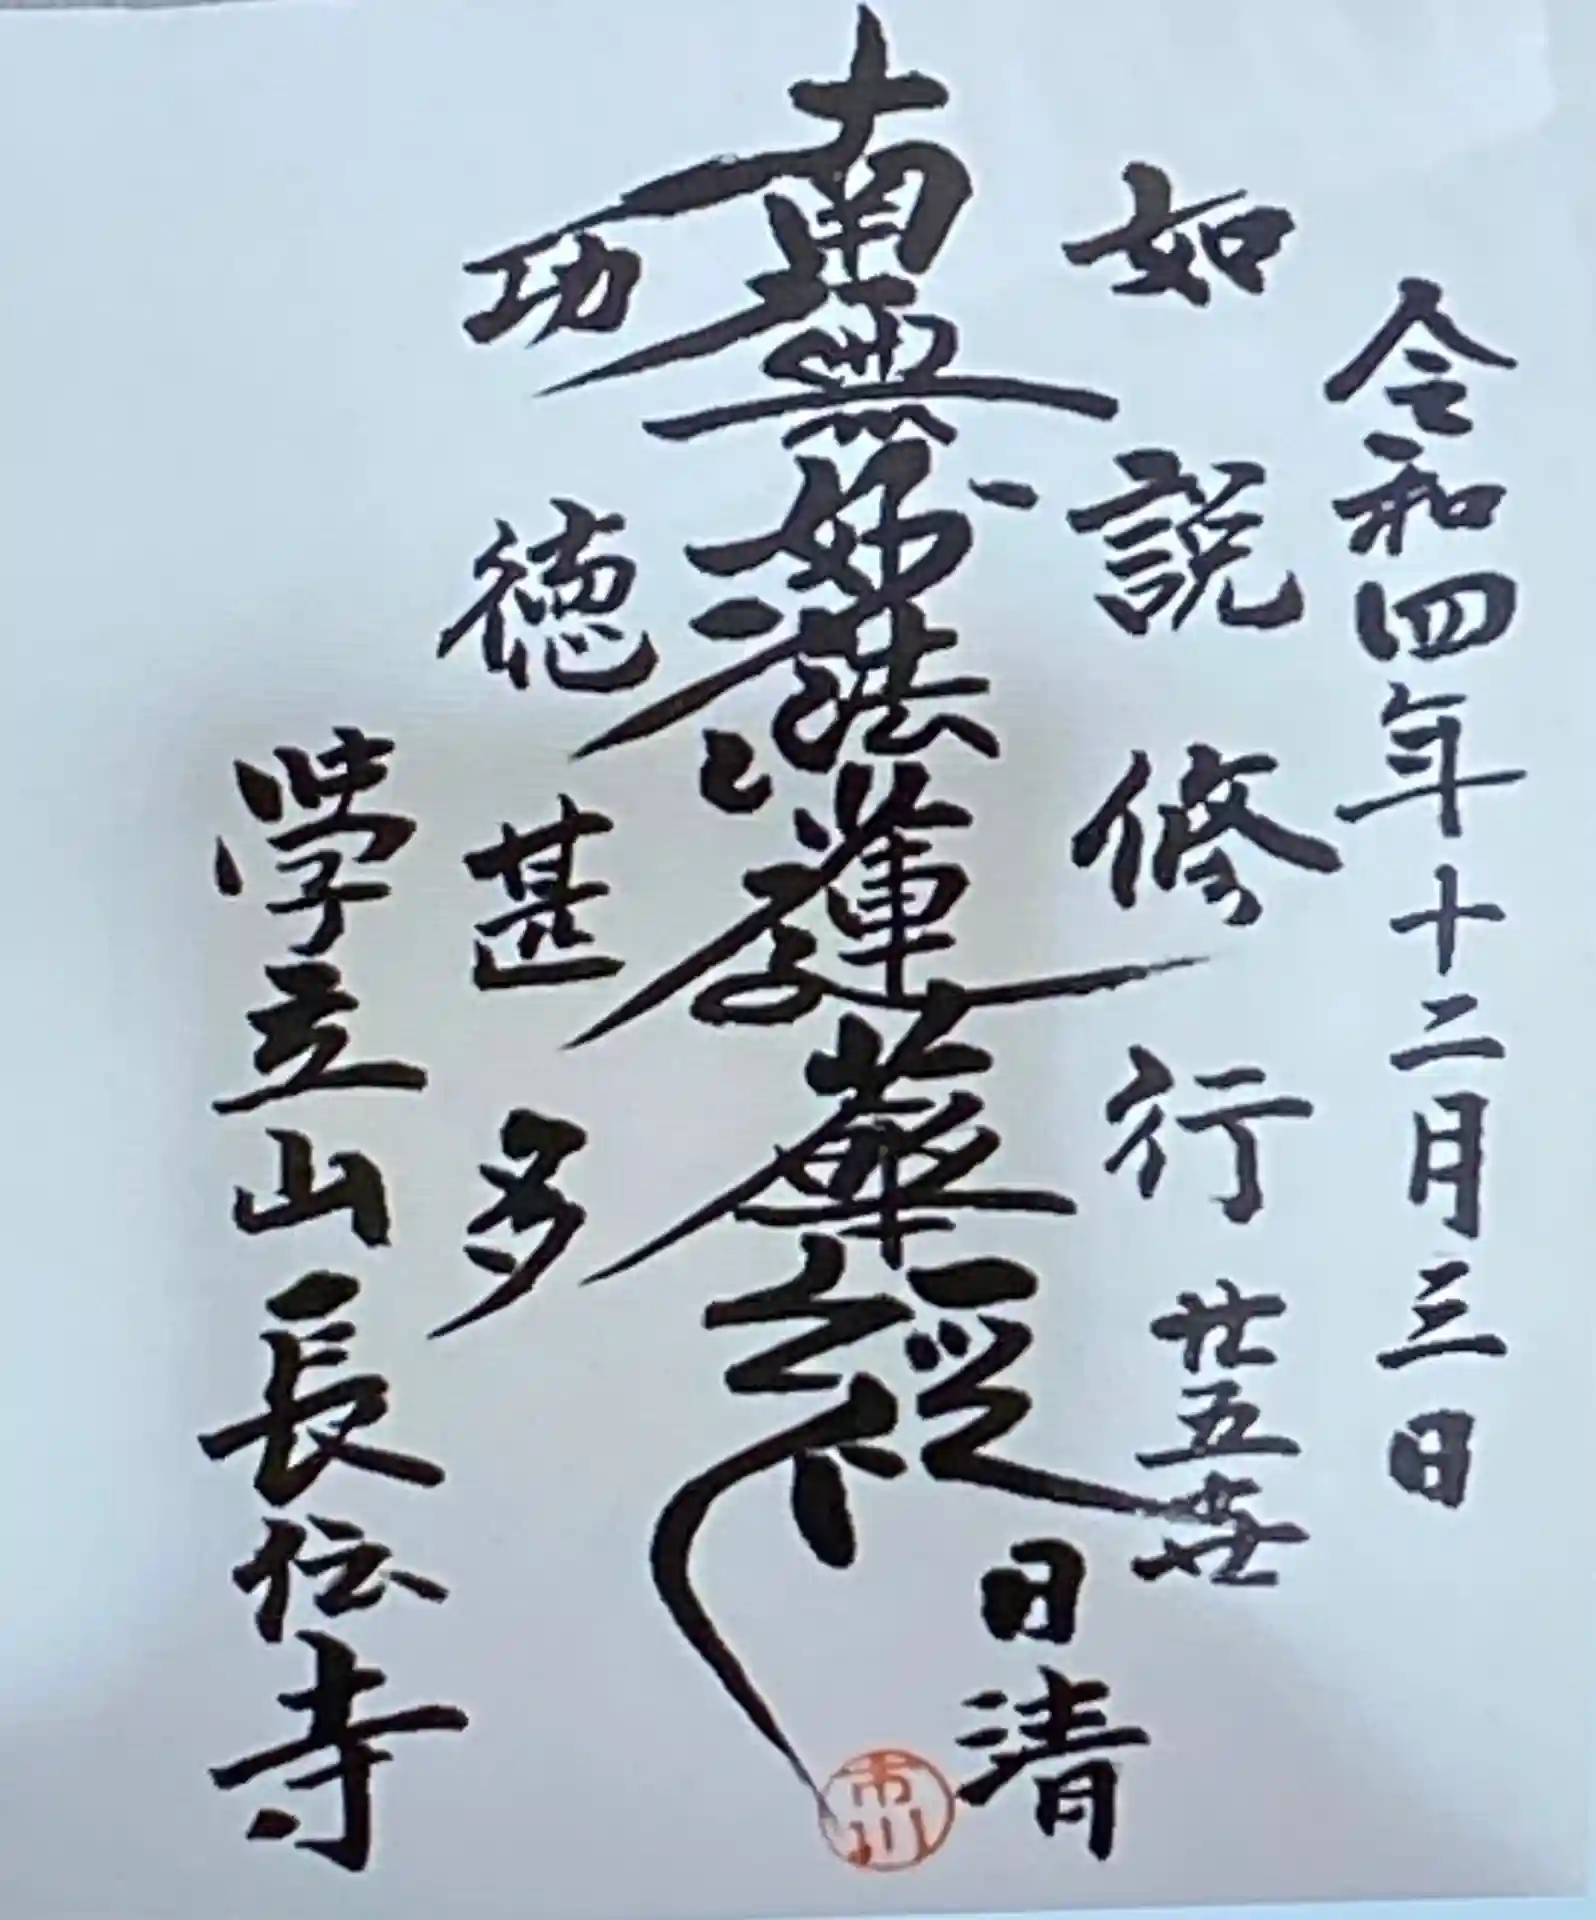 令和四年十二月三日
如説修行
廿五世
日清
南無妙法蓮華経
市川
功徳甚多
学立山長伝寺